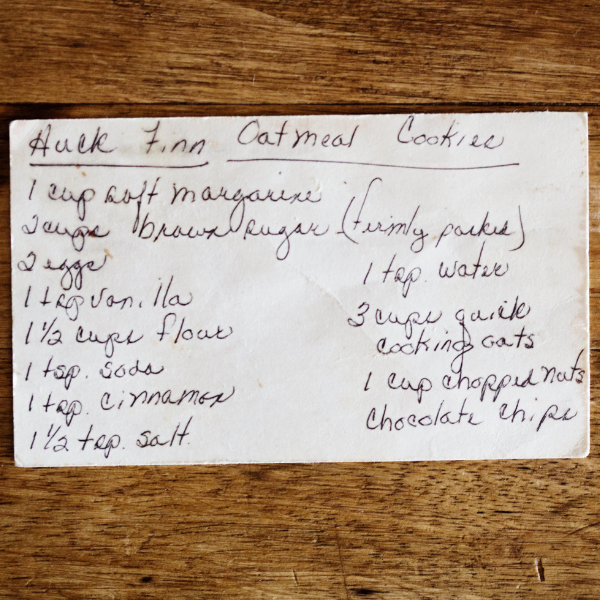 Huck Finn Oatmeal Cookies
1 cup soft margarine
2 cups brown sugar (firmly packed)
2 eggs
1 tsp vanilla
1 1/2 cups flour
1 tsp. soda
1 tsp. cinnamon
1 1/2 tsp. salt.
1 tsp. water
3 cups quick
cooking oats
1 cup chopped nuts
chocolate chips